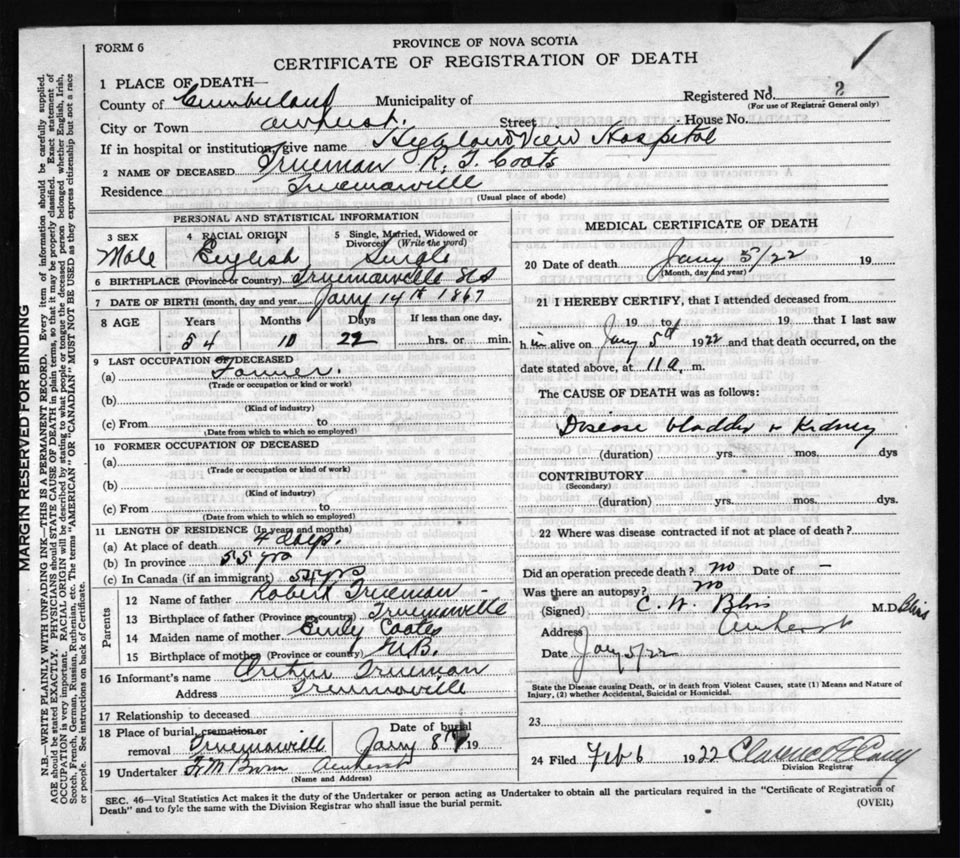 PROVINCE OF NOVA SCOTIA
FORM 6
CERTIFICATE OF REGISTRATION OF DEATH
1 PLACE OF DEATH—
Registered No. 2
(For use of Registrar General only)
County of Cumberland Municipality of
City or Town Amherst. Street House No.
If in hospital or institution, give name Highland View Hospital
2 NAME OF DECEASED Trueman R. T. Coats
Residence Truemanville
(Usual place of abode)
PERSONAL AND STATISTICAL INFORMATION
3 SEX 4 RACIAL ORIGIN 5 Single, Married, Widowed or Divorced (Write the word)
Male English Single
6 BIRTHPLACE (Province or Country) Truemanville NS
7 DATE OF BIRTH (month, day and year) Jany 14th 1867
8 AGE Years Months Days If less than one day,
54 10 22 hrs. or min.
9 LAST OCCUPATION OF DECEASED
(a) Farmer.
(Trade or occupation or kind or work)
(b)
(Kind of industry)
(c) From to
(Date from which to which so employed)
10 FORMER OCCUPATION OF DECEASED
(a)
(Trade or occupation or kind of work)
(b)
(Kind of industry)
(c) From to
(Date from which to which so employed)
11 LENGTH OF RESIDENCE (In years and months)
(a) At place of death 4 days.
(b) In province 55 yrs
(c) In Canada (if an immigrant) yrs
Parents
12 Name of father Robert Trueman
13 Birthplace of father (Province or country) Truemanville
14 Maiden name of mother Emily Coates
15 Birthplace of mother (Province or country) N.B.
16 Informant's name Arthur Trueman
Address Truemanville
17 Relationship to deceased
18 Place of burial, cremation or removal Truemanville
Date of burial Jany 8th 19
19 Undertaker Amherst
(Name and Address)
MEDICAL CERTIFICATE OF DEATH
20 Date of death Jany 5/22 19
(Month, day and year)
21 I HEREBY CERTIFY, that I attended deceased from
19 to 19 that I last saw
him alive on Jany 5th 1922 and that death occurred, on the
date stated above, at 11 a. m.
The CAUSE OF DEATH was as follows:
Disease bladder & Kidney
(duration) yrs. mos. dys
CONTRIBUTORY
(Secondary)
(duration) yrs. mos. dys.
22 Where was disease contracted if not at place of death?
Did an operation precede death? no Date of —
Was there an autopsy? no
(Signed) C. W. Bliss M.D. Bliss
Address Amherst
Date Jany 5/22
State the Disease causing Death, or in death from Violent Causes, state (1) Means and Nature of
Injury, (2) whether Accidental, Suicidal or Homicidal.
23
24 Filed Feb 6 1922 Clarence
Division Registrar
SEC. 46—Vital Statistics Act makes it the duty of the Undertaker or person acting as Undertaker to obtain all the particulars required in the "Certificate of Registration of
Death" and to fyle the same with the Division Registrar who shall issue the burial permit.
(OVER)
MARGIN RESERVED FOR BINDING
N.B.—WRITE PLAINLY WITH UNFADING INK—THIS IS A PERMANENT RECORD. Every item of information should be carefully supplied.
AGE should be stated EXACTLY. PHYSICIANS should STATE CAUSE OF DEATH in plain terms, so that it may be properly classified. Exact statement of
OCCUPATION is very important. RACIAL ORIGIN will be described by stating to what people or tongue the deceased person belonged whether English, Irish,
Scotch, French, German, Russian, Ruthenian, etc. The terms "AMERICAN" OR "CANADIAN" MUST NOT BE USED as they express citizenship but not a race
or people. See instructions on back of Certificate.